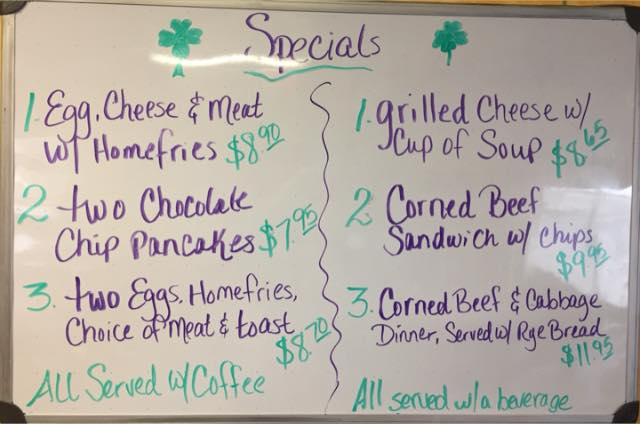 Specials
1. Egg, Cheese & Meat
w/ Homefries $8.90
2 two Chocolate
Chip Pancakes $7.95
3. two Eggs, Homefries,
Choice of Meat & toast
$8.70
All Served w/Coffee
1. grilled Cheese w/
Cup of Soup $8.65
2 Corned Beef
Sandwich w/ Chips
$9.95
3. Corned Beef & Cabbage
Dinner, Served w/ Rye Bread
$11.95
All served w/a beverage